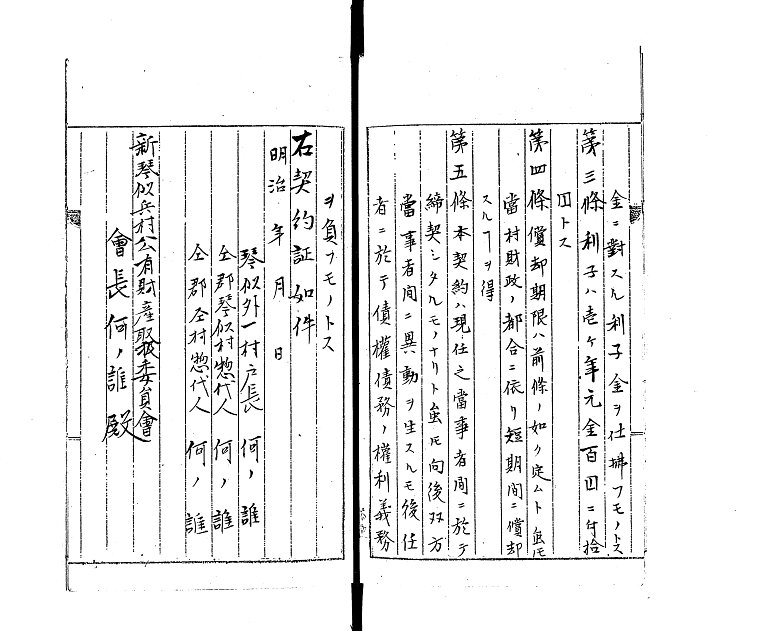 金ニ對スル利子金ヲ仕拂フモノトス
第三條利子ハ壱ヶ年元金百囙ニ付拾
囙トス
第四條償却期限ハ前條ノ如ク定ムト虽𪜈
當村財政ノ都合ニ依リ短期間ニ償却
スルヿヲ得
第五條本契約ハ現任之當事者間ニ於テ
締契シタルモノナリト虽𪜈向後双方
當事者間ニ異動ヲ生スルモ後任
者ニ於テ債權債務ノ權利義務
ヲ負フモノトス
右契約証如件
明治 年 月 日
琴似外一村戸長 何ノ誰
仝郡琴似村惣代人 何ノ誰
仝郡仝村惣代人 何ノ誰
新琴似兵村公有財産取扱委員會
會長何ノ誰殿